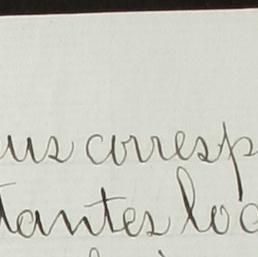 us corresp
tantes loc